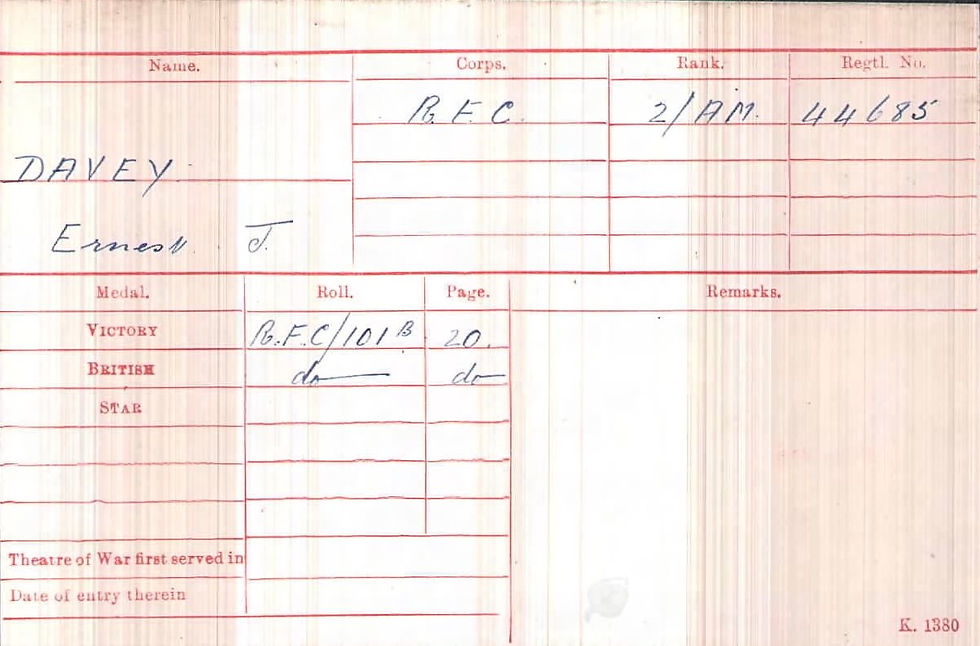 Name. Corps. Rank. Regtl. No.
R.F.C. 2/AM. 44685
DAVEY.
Ernest J.
Medal. Roll. Page. Remarks.
VICTORY R.F.C/101B 20.
BRITISH do do
STAR
Theatre of War first served in
Date of entry therein
K. 1380